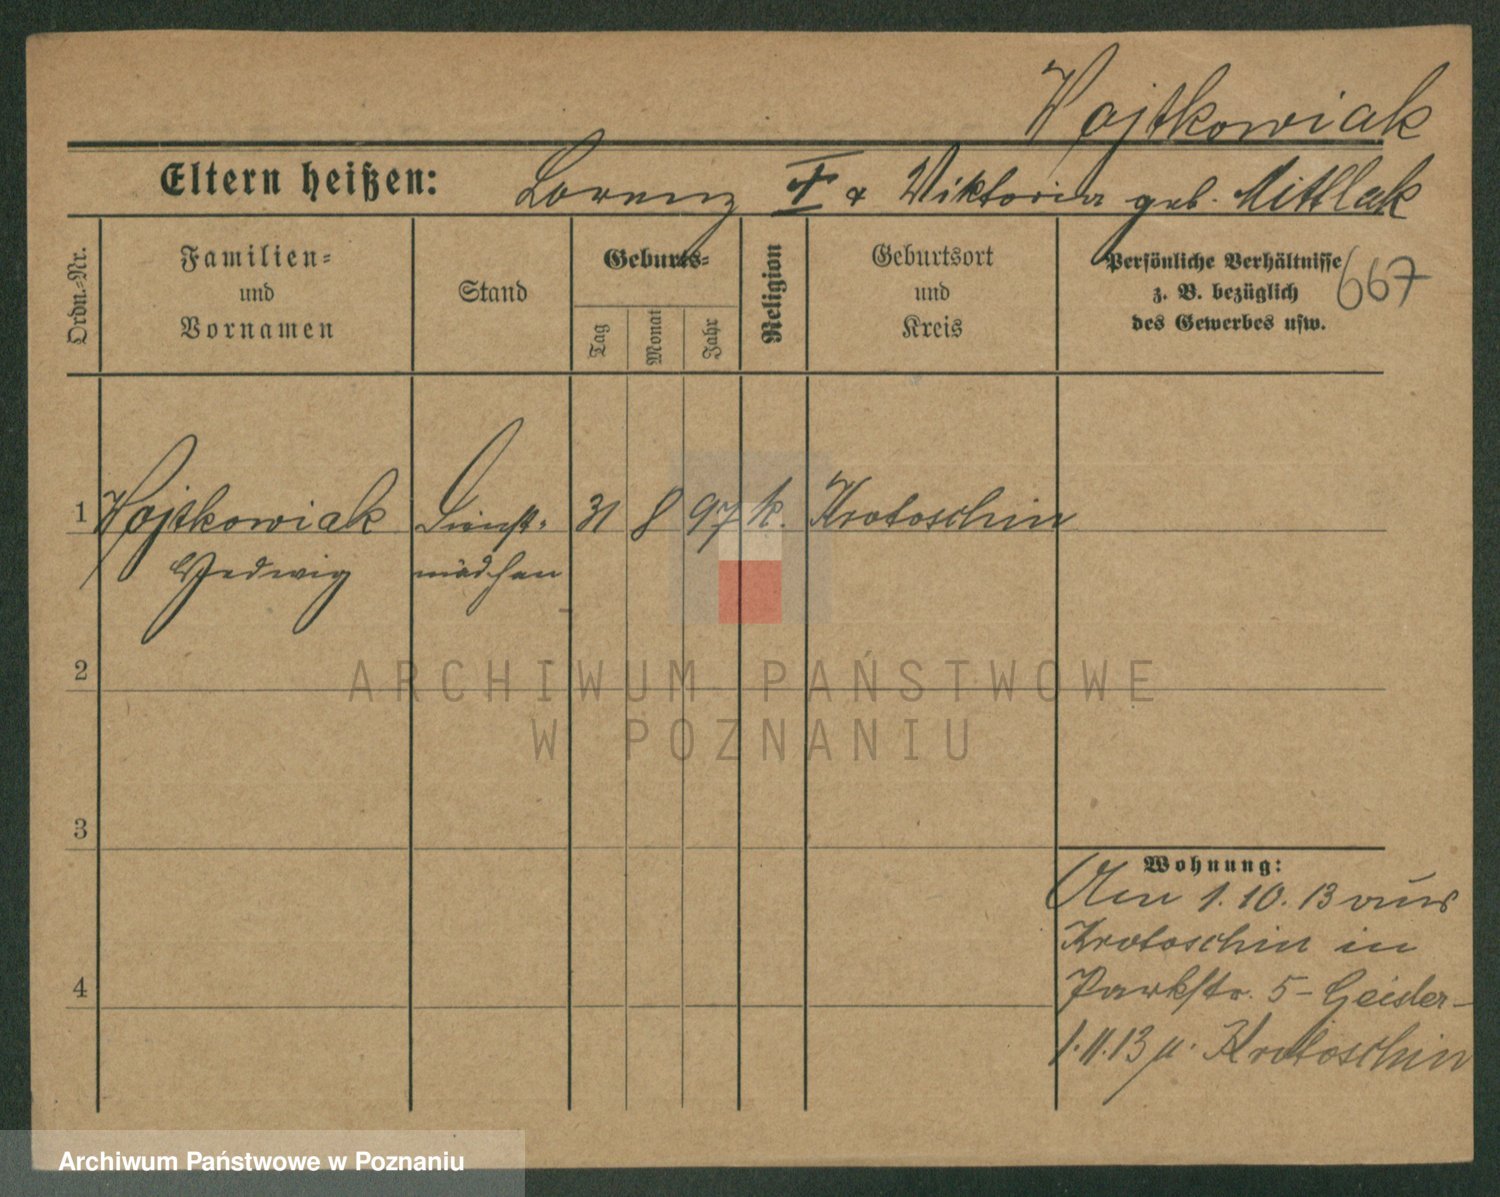 Wojtkowiak
Eltern heißen: Lorenz † & Viktoria geb. Mittlak
Ordn.=Nr.
Familien=
und
Vornamen
Stand
Geburts=
Tag
Monat
Jahr
Religion
Geburtsort
und
Kreis
Persönliche Verhältnisse
z. B. bezüglich
des Gewerbes usw.
667
1 Wojtkowiak Dienst= 31 8 97 k. Krotoschin
Hedwig mädchen
2
3
4
Wohnung:
Am 1. 10. 13 aus
Krotoschin in
Parkstr. 5 - Geisler -
1.11.13 n. Krotoschin
ARCHIWUM PAŃSTWOWE
W POZNANIU
Archiwum Państwowe w Poznaniu